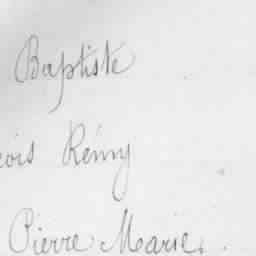 Baptiste
cois Rémy
Pierre Marie.